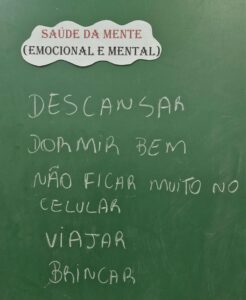 SAÚDE DA MENTE
(EMOCIONAL E MENTAL)
DESCANSAR
DORMIR BEM
NÃO FICAR MUITO NO
CELULAR
VIAJAR
BRINCAR